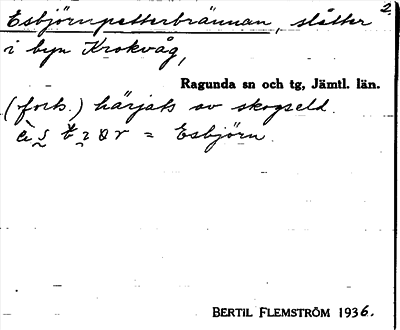 Esbjörnpetterbrännan, slåtter 2.
i byn Krokvåg,
Ragunda sn och tg, Jämtl. län.
(forts.) härjats av skogseld.
= Esbjörn.
BERTIL FLEMSTRÖM 1936.